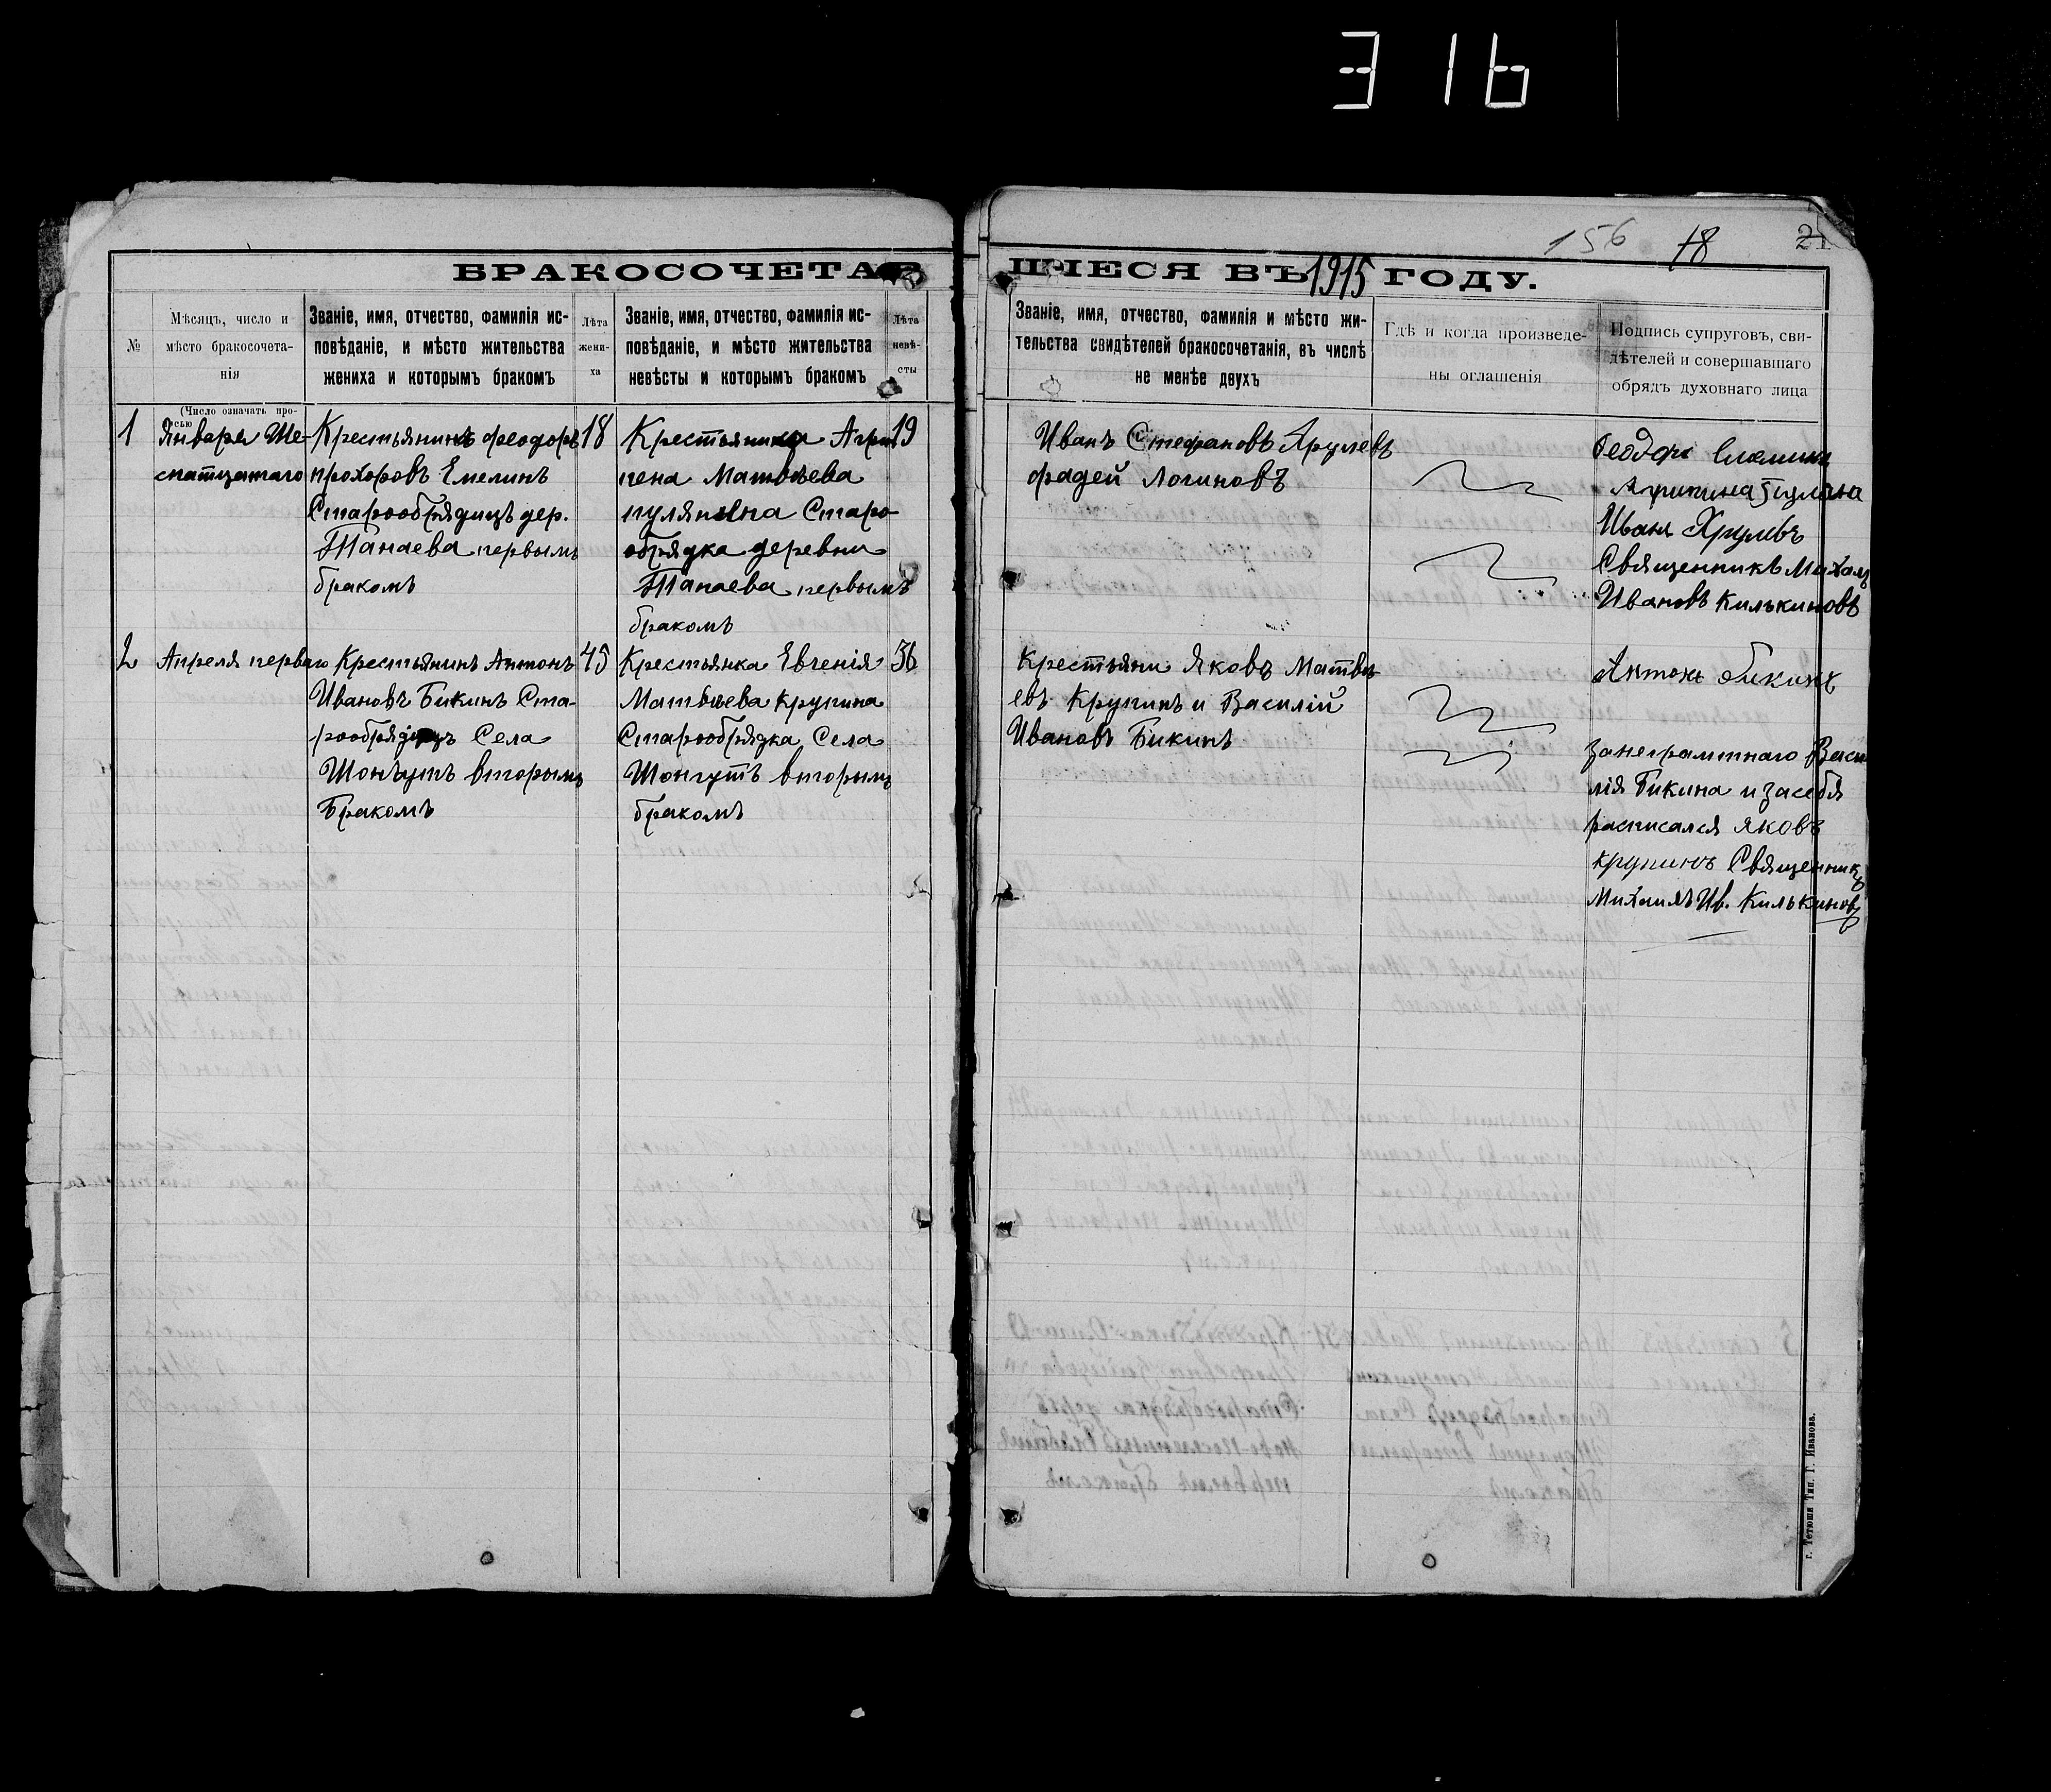 316
156 18 21
БРАКОСОЧЕТАВШІЕСЯ ВЪ 1915 ГОДУ.
№
Мѣсяцъ, число и
мѣсто бракосочета-
нія
(Число означать про-
сью
Званіе, имя, отчество, фамилія ис-
повѣданіе, и мѣсто жительства
жениха и которымъ бракомъ
Лѣта
жени-
ха
Званіе, имя, отчество, фамилія ис-
повѣданіе, и мѣсто жительства
невѣсты и которымъ бракомъ
Лѣта
невѣ-
сты
Званіе, имя, отчество, фамилія и мѣсто жи-
тельства свидѣтелей бракосочетанія, въ числѣ
не менѣе двухъ
Гдѣ и когда произведе-
ны оглашенія
Подпись супруговъ, сви-
дѣтелей и совершавшаго
обрядъ духовнаго лица
1
Января Ше-
снатцатаго
Крестьянинъ феодоръ
прохоровъ Емелинъ
Старообрядицъ дер.
Танаева первымъ
бракомъ
18
Крестьянка Агри
пена Матвѣева
пулянина Старо-
обрядка деревни
Танаева первымъ
бракомъ
19
Иванъ Стефановъ Хрулевъ
фадей Логиновъ
Феодоръ
Иванъ Хрулевъ
Священникъ Михаилъ
Ивановъ Килькиновъ
2
Апреля перваго
Крестьянинъ Антонъ
Ивановъ Бикинъ Ста-
рообрядицъ Села
Шонгутъ вторымъ
Бракомъ
45
Крестьянка Евгенія
Матвѣева Крупина
Старообрядка Села
Шонгутъ вторымъ
бракомъ
36
Крестьяни Яковъ Матвѣ
евъ Крупинъ и Василій
Ивановъ Бикинъ
Антонъ бикинъ
Занеграмтнаго Васи
лія Бикина и засебя
расписался Яковъ
крупинъ Священникъ
Михаилъ Ив. Килькиновъ
г. Тетюши Тип. Г. Иванова.